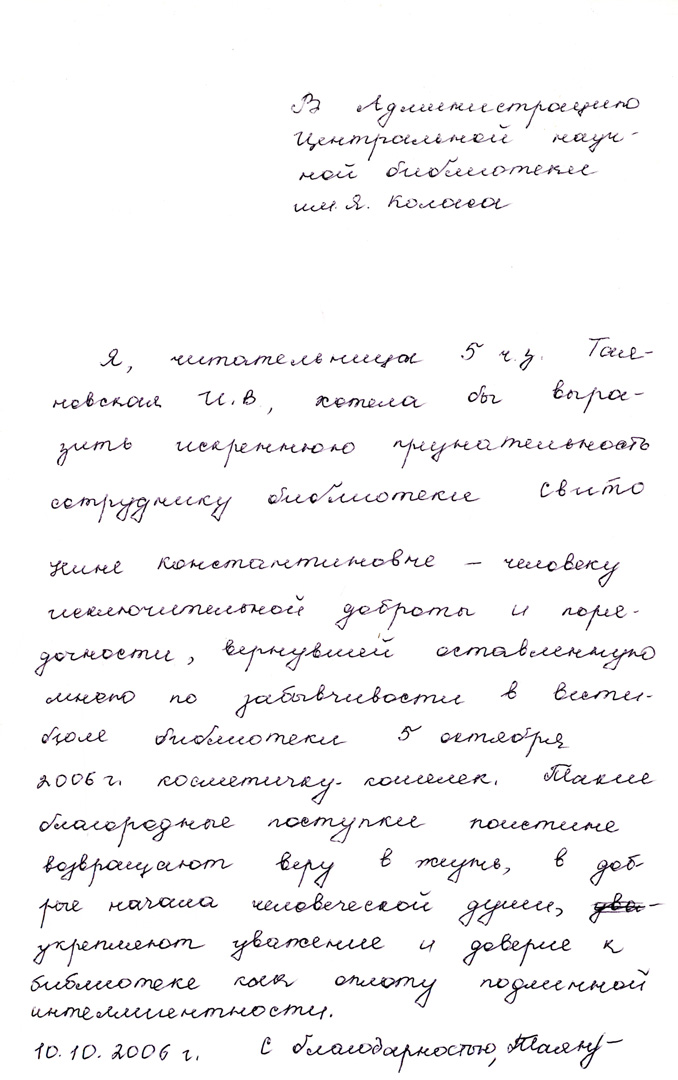 В Администрацию
Центральной науч-
ной библиотеки
им. Я. Коласа
Я, читательница 5 ч.з. Тая-
новская И.В., хотела бы выра-
зить искреннюю признательность
сотруднику библиотеки Свито
Нине Константиновне – человеку
исключительной доброты и поря-
дочности, вернувшей оставленную
мною по забывчивости в вести-
бюле библиотеки 5 октября
2006 г. косметичку-кошелек. Такие
благородные поступки поистине
возвращают веру в жизнь, в доб-
рые начала человеческой души,
укрепляют уважение и доверие к
библиотеке как оплоту подлинной
интеллигентности.
10.10.2006 г. С благодарностью,